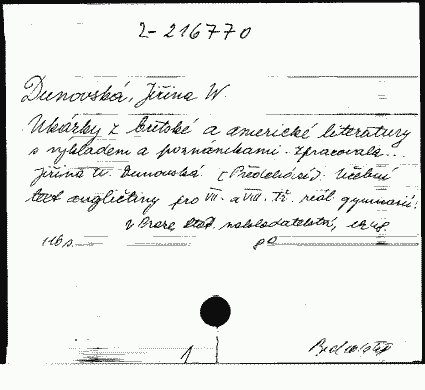 2-216770
Dunovská, Jiřina W.
Ukázky z britské a americké literatury
s výkladem a poznámkami. Zpracovala
Jiřina W. Dunovská. [Předchází]. Učební
text angličtiny pro VII. a VIII. tř. reál. gymnasií.
v Praze, Stát. nakladatelství,
116 s. 8°
1